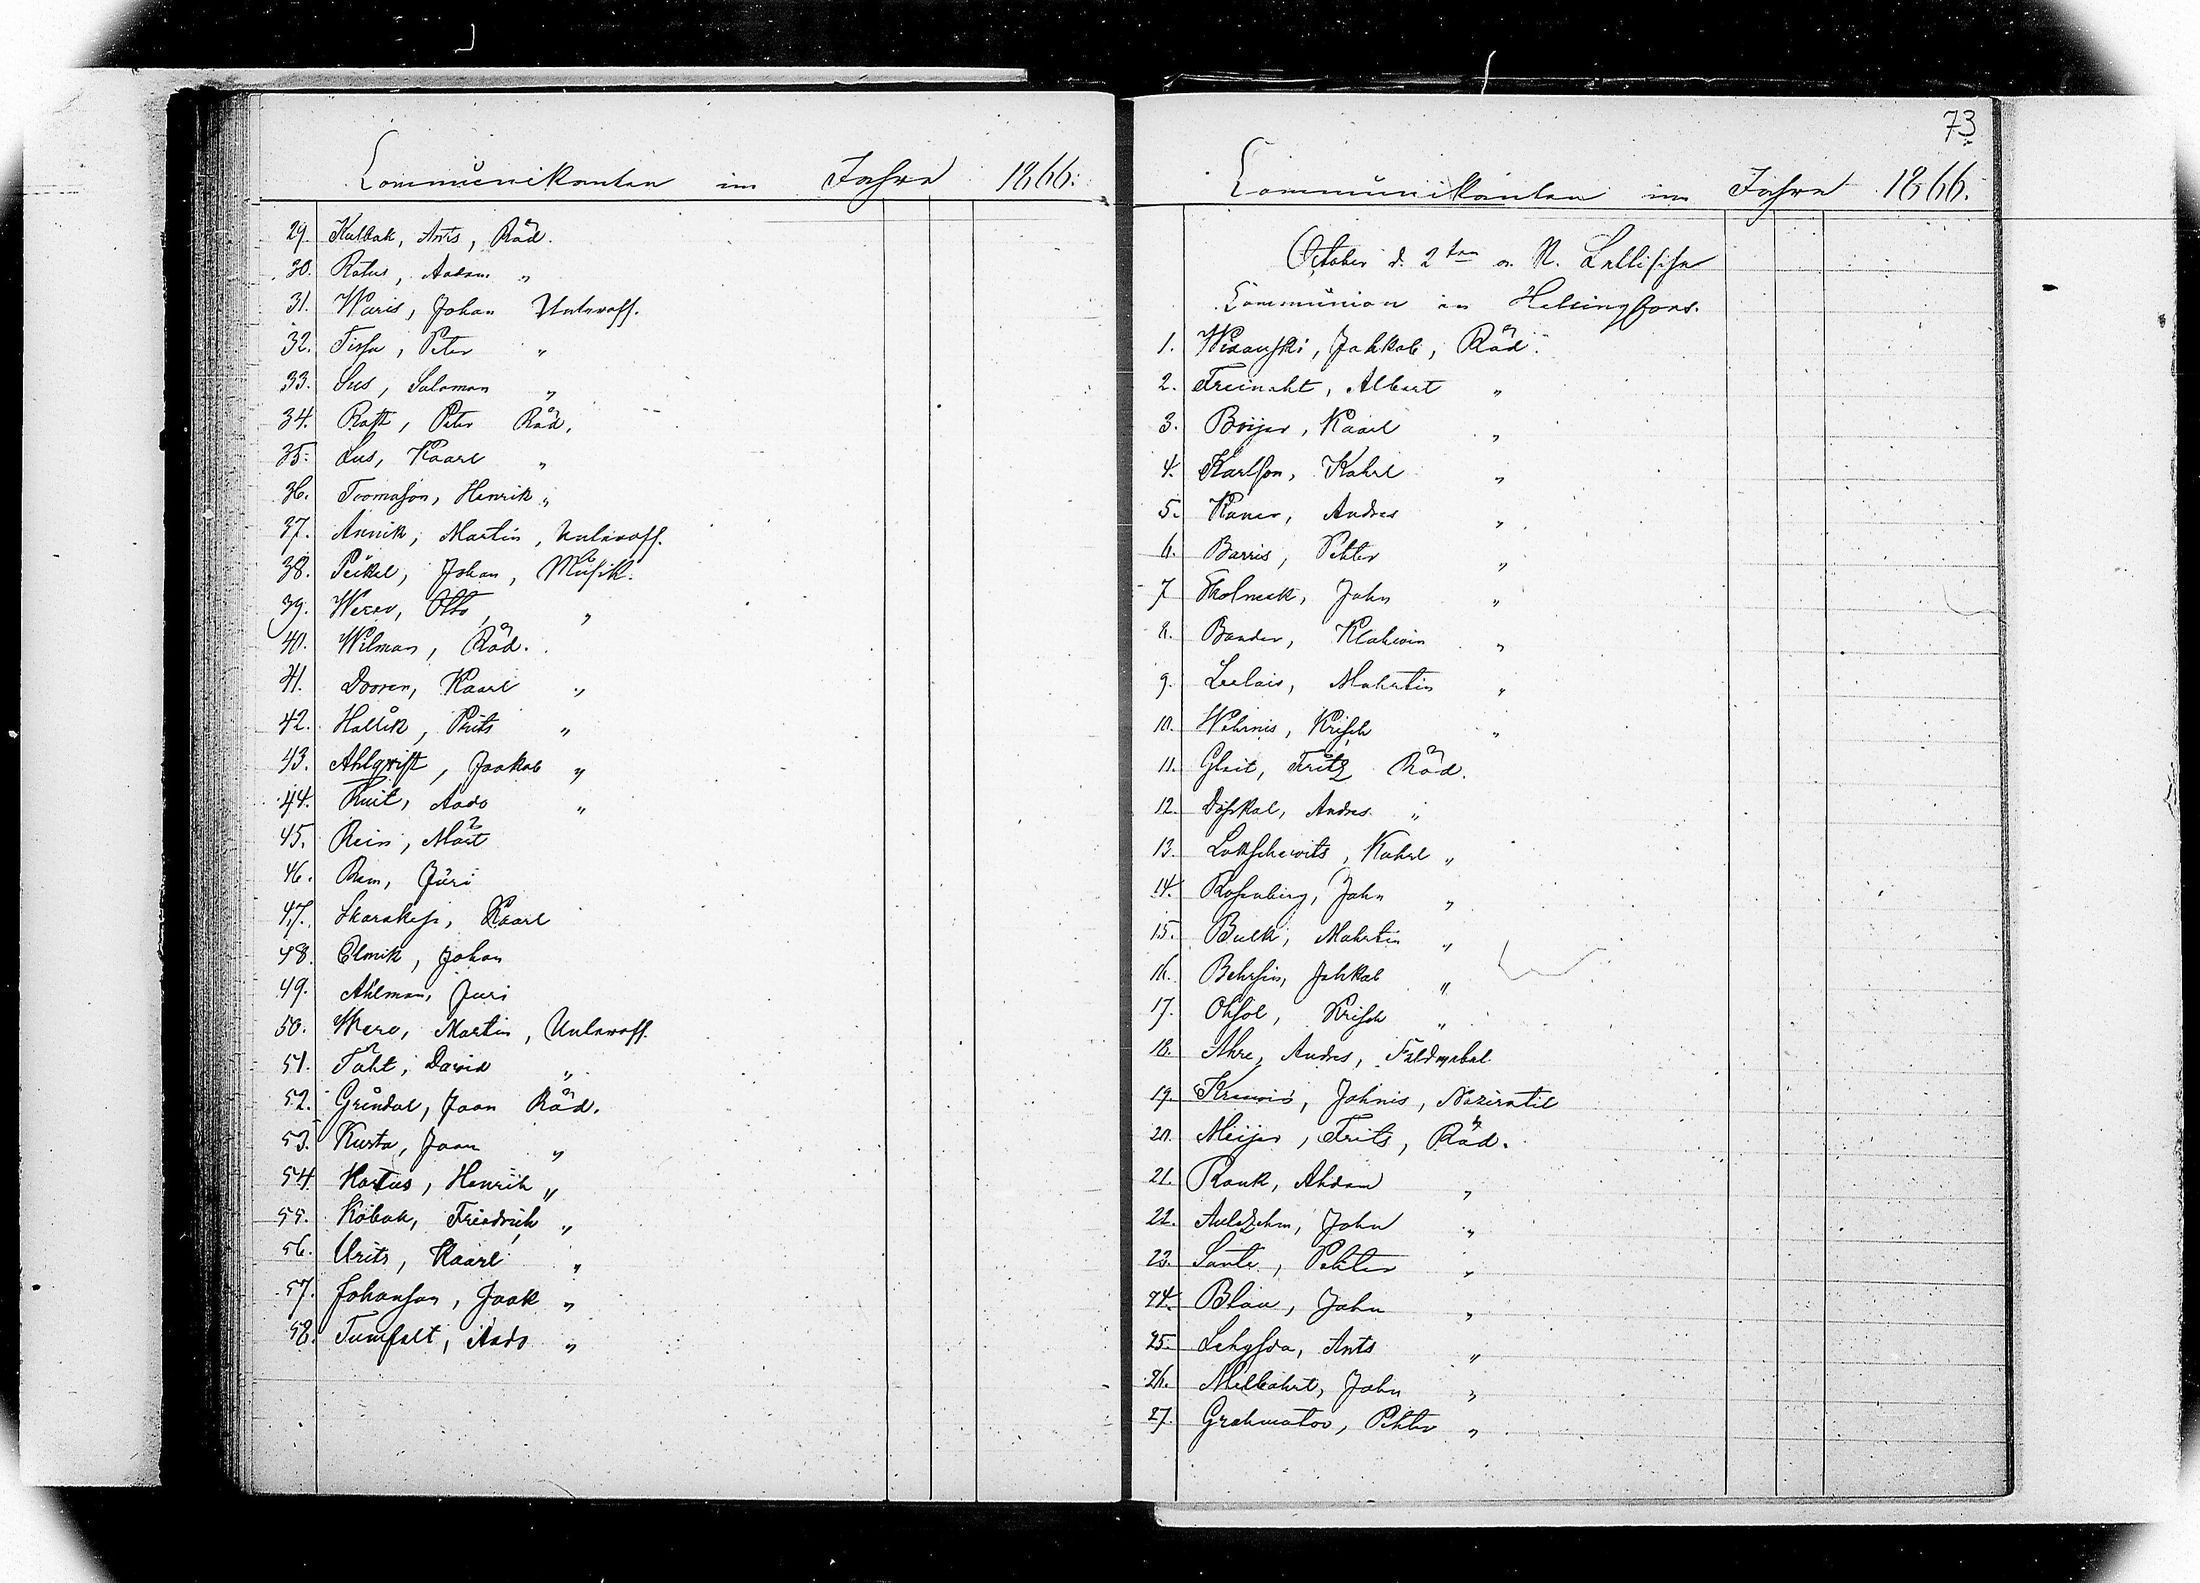 Communikanten im Jahre 1866.
29. Kulbak, Ants, Räd.
30. Ratus, Aadam "
31. Waris, Johan Unteroff.
32. Tissa, Peter "
33. Sus, Salomon "
34. Raft, Peter Räd.
35. Lus, Kaarl "
36. Toomason, Henrik "
37. Annik, Martin, Unteroff.
38. Peikel, Johan, Musik.
39. Werev, Otto, "
40. Wilman, Räd.
41. Dooren, Kaarl "
42. Hallik, Prits "
43. Ahlqwist, Jaakob "
44. Ruit, Aado "
45. Rein, Märt
46. Ram, Jüri
47. Kaarl
48. Elmik, Johan
49. Ahlman, Juri
50. Wero, Martin, Unteroff.
51. Täht, Dawid "
52. Gründal, Jaan Räd.
53. Kusta, Jaan "
54. Hartus, Henrik "
55. Kobak, Friedrich "
56. Urits, Kaarl "
57. Johanson, Jaak "
58. Tumfelt, Aado "
73
Communikanten im Jahre 1866.
October d. 2ten a. St. Lettische
Communion in Helsingfors.
1. Jahkob, Räd.
2. Freinaht, Albert "
3. Böijer, Kaarl "
4. Karlson, Kahrl "
5. Kaner, Andres "
6. Barris, Pehter "
7 Skolneek, Jahn "
8. Bander, Klahwin "
9. Leelais, Mahrtin "
10. Wehrnis, Krisch "
11. Glait, Fritz Räd.
12. Andres "
13. Lakschewits, Kahrl "
14. Rosenberg, Jahn "
15. Bulk, Mahrtin "
16. Behrsin, Jahkob "
17. Ohsol, Krisch "
18. Ahre, Andres,
19. Kreewis, Jahnis,
20. Meijer, Frits, Räd.
21. Rauk, Ahdam "
22. Aulezehm, Jahn "
23. Sante, Pehter "
24. Blau, Jahn "
25. Ants "
26. Milbahrt, Jahn "
27. Grahmator, Pehter "